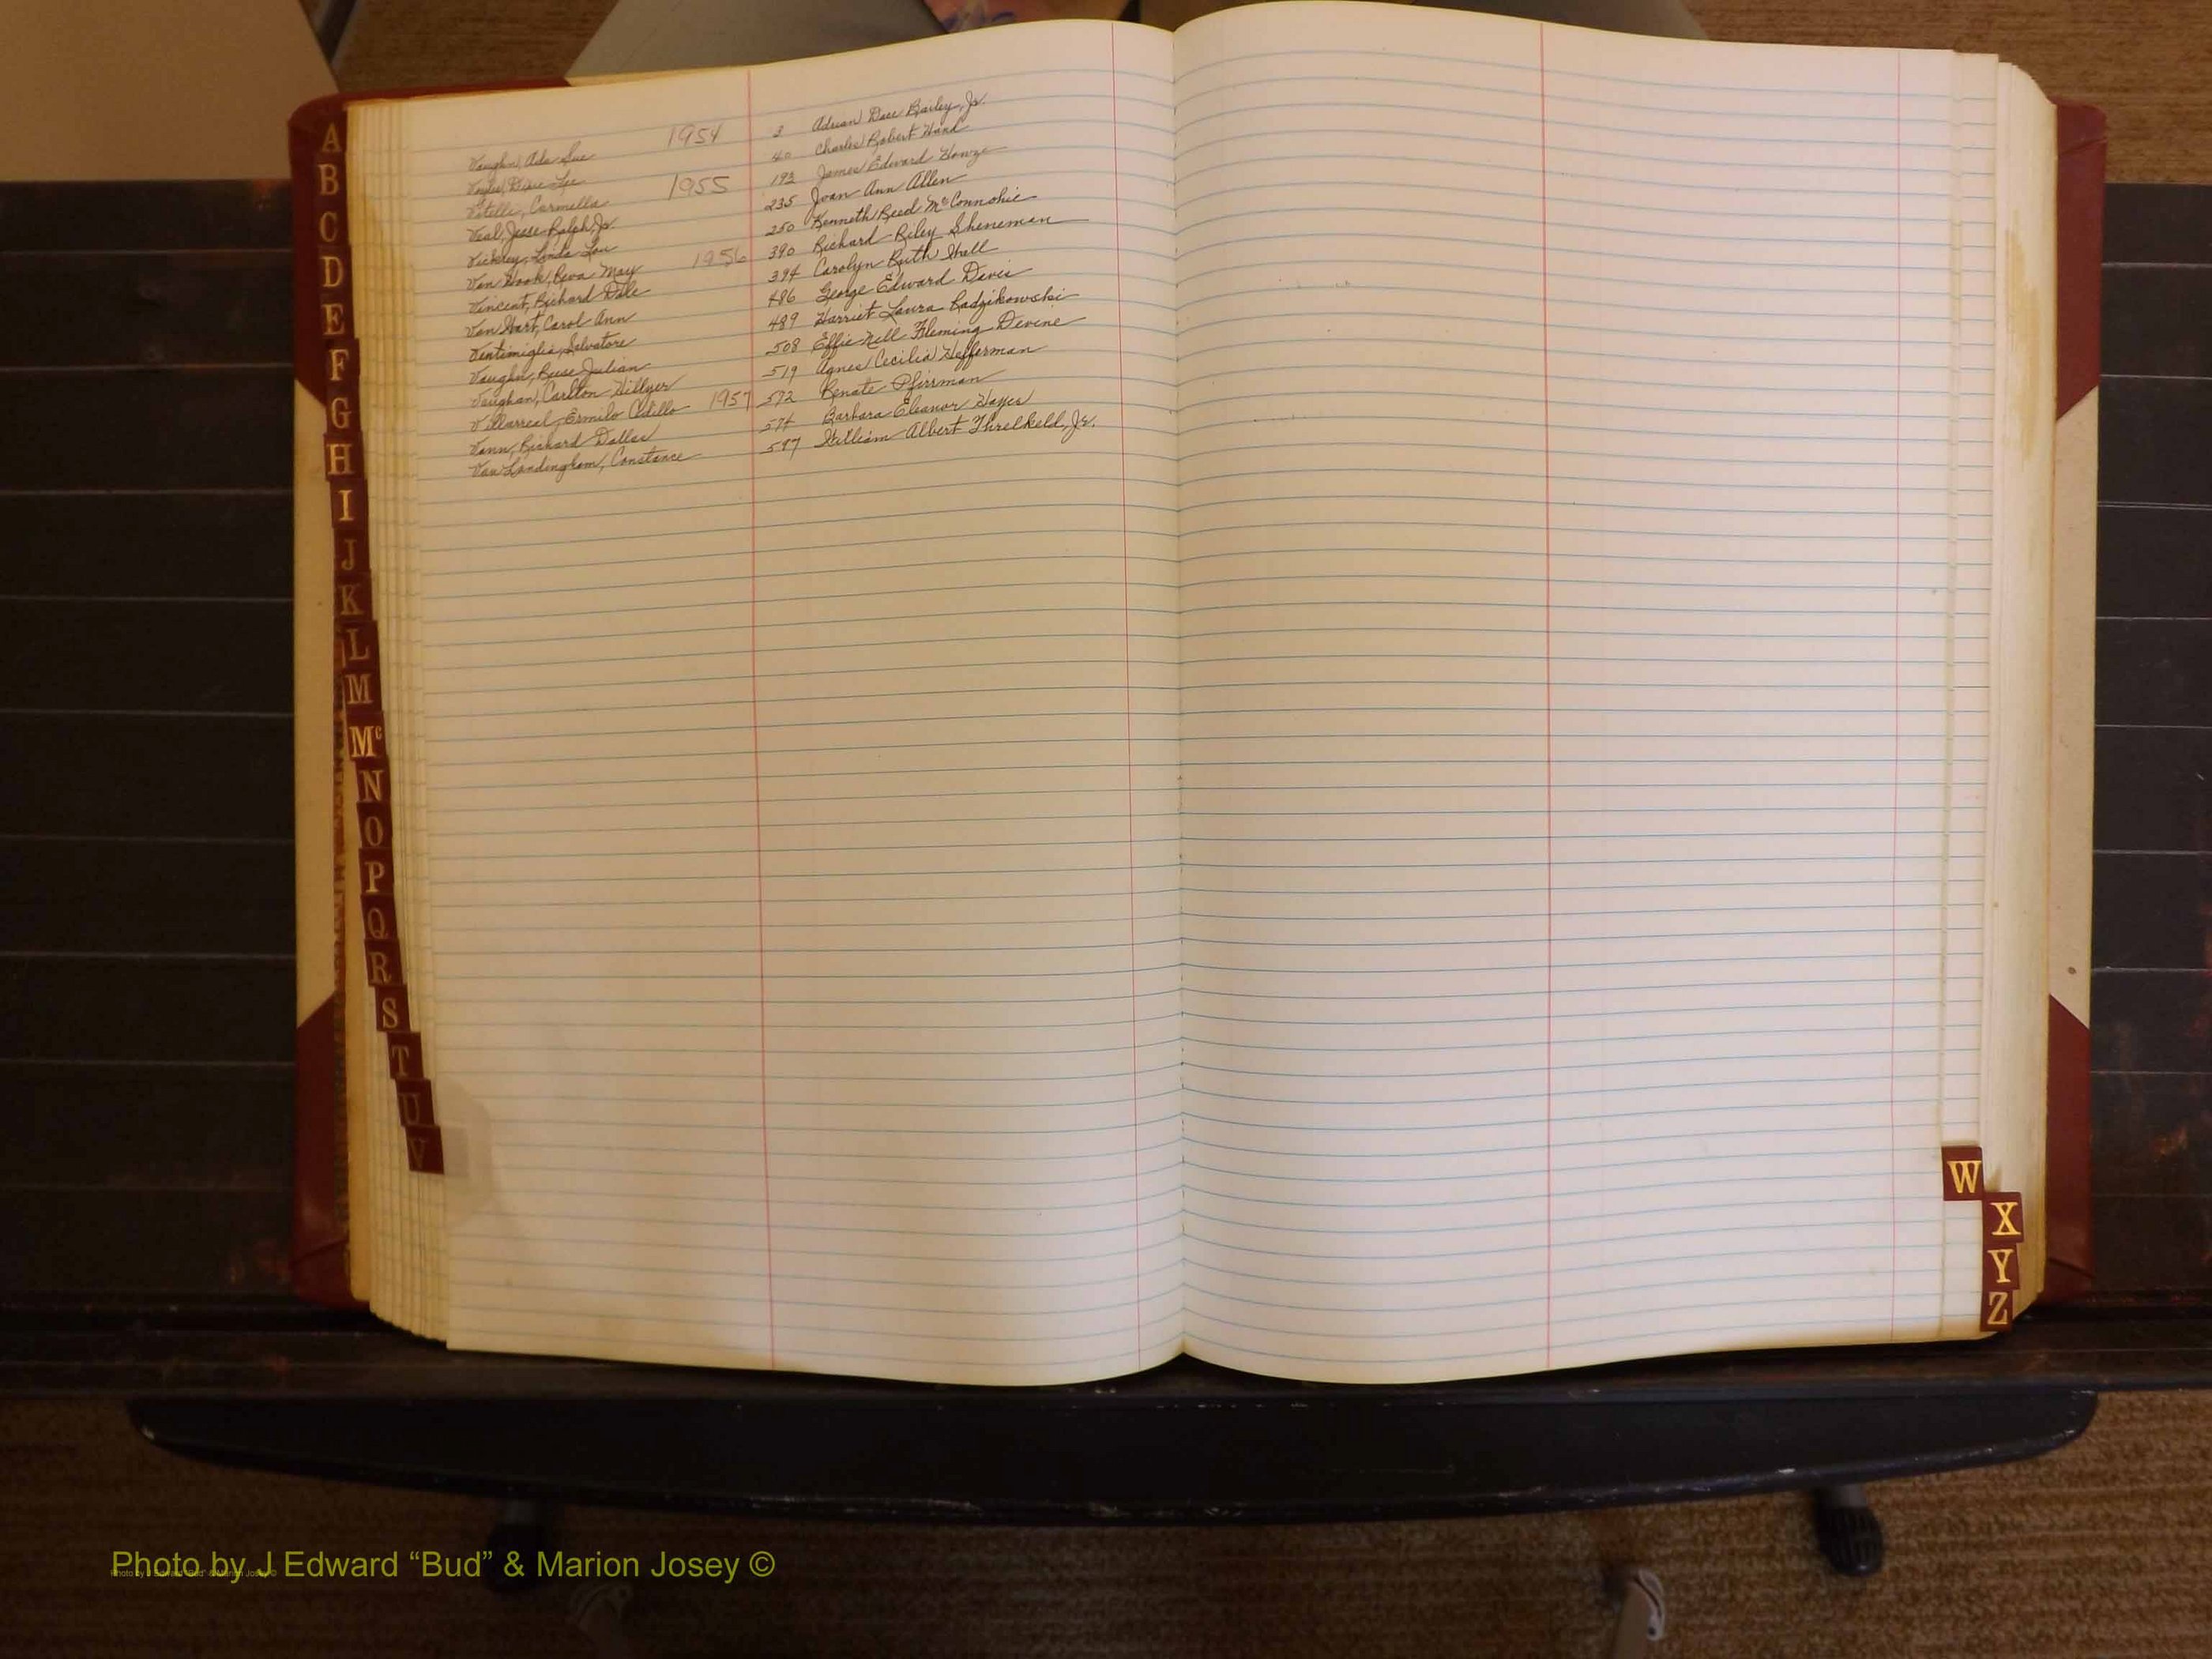 Vaughn, Ada Sue 1954 3 Adrian Dace Bailey, Jr.
Lee 40 Charles Robert Hand
Vitelli, Carmella 1955 193 James Edward Howze
Veal, Jesse Ralph, Jr. 235 Joan Ann Allen
Vickrey, Linda Lou 250 Kenneth Reed McConnohie
Van Hook, Reva May 1956 390 Richard Riley Sheneman
Vincent, Richard Dale 394 Carolyn Ruth Hall
Van Hart, Carol Ann 486 George Edward Davis
Ventimiglia, Salvatore 489 Harriet Laura Radzikowski
Vaughn, Reese Julian 508 Effie Nell Fleming Devine
Vaughan, Carlton Hillyer 519 Agnes Cecilia Hefferman
Villarreal, Ermilo 1957 572 Renate Pfirrman
Vann, Richard Dallas 574 Barbara Eleanor Hayes
Van Landingham, Constance 597 William Albert Threlkeld, Jr.
A
B
C
D
E
F
G
H
I
J
K
L
M
Mc
N
O
P
Q
R
S
T
U
V
W
X
Y
Z
Photo by J Edward “Bud” & Marion Josey ©
Photo by J Edward “Bud” & Marion Josey ©